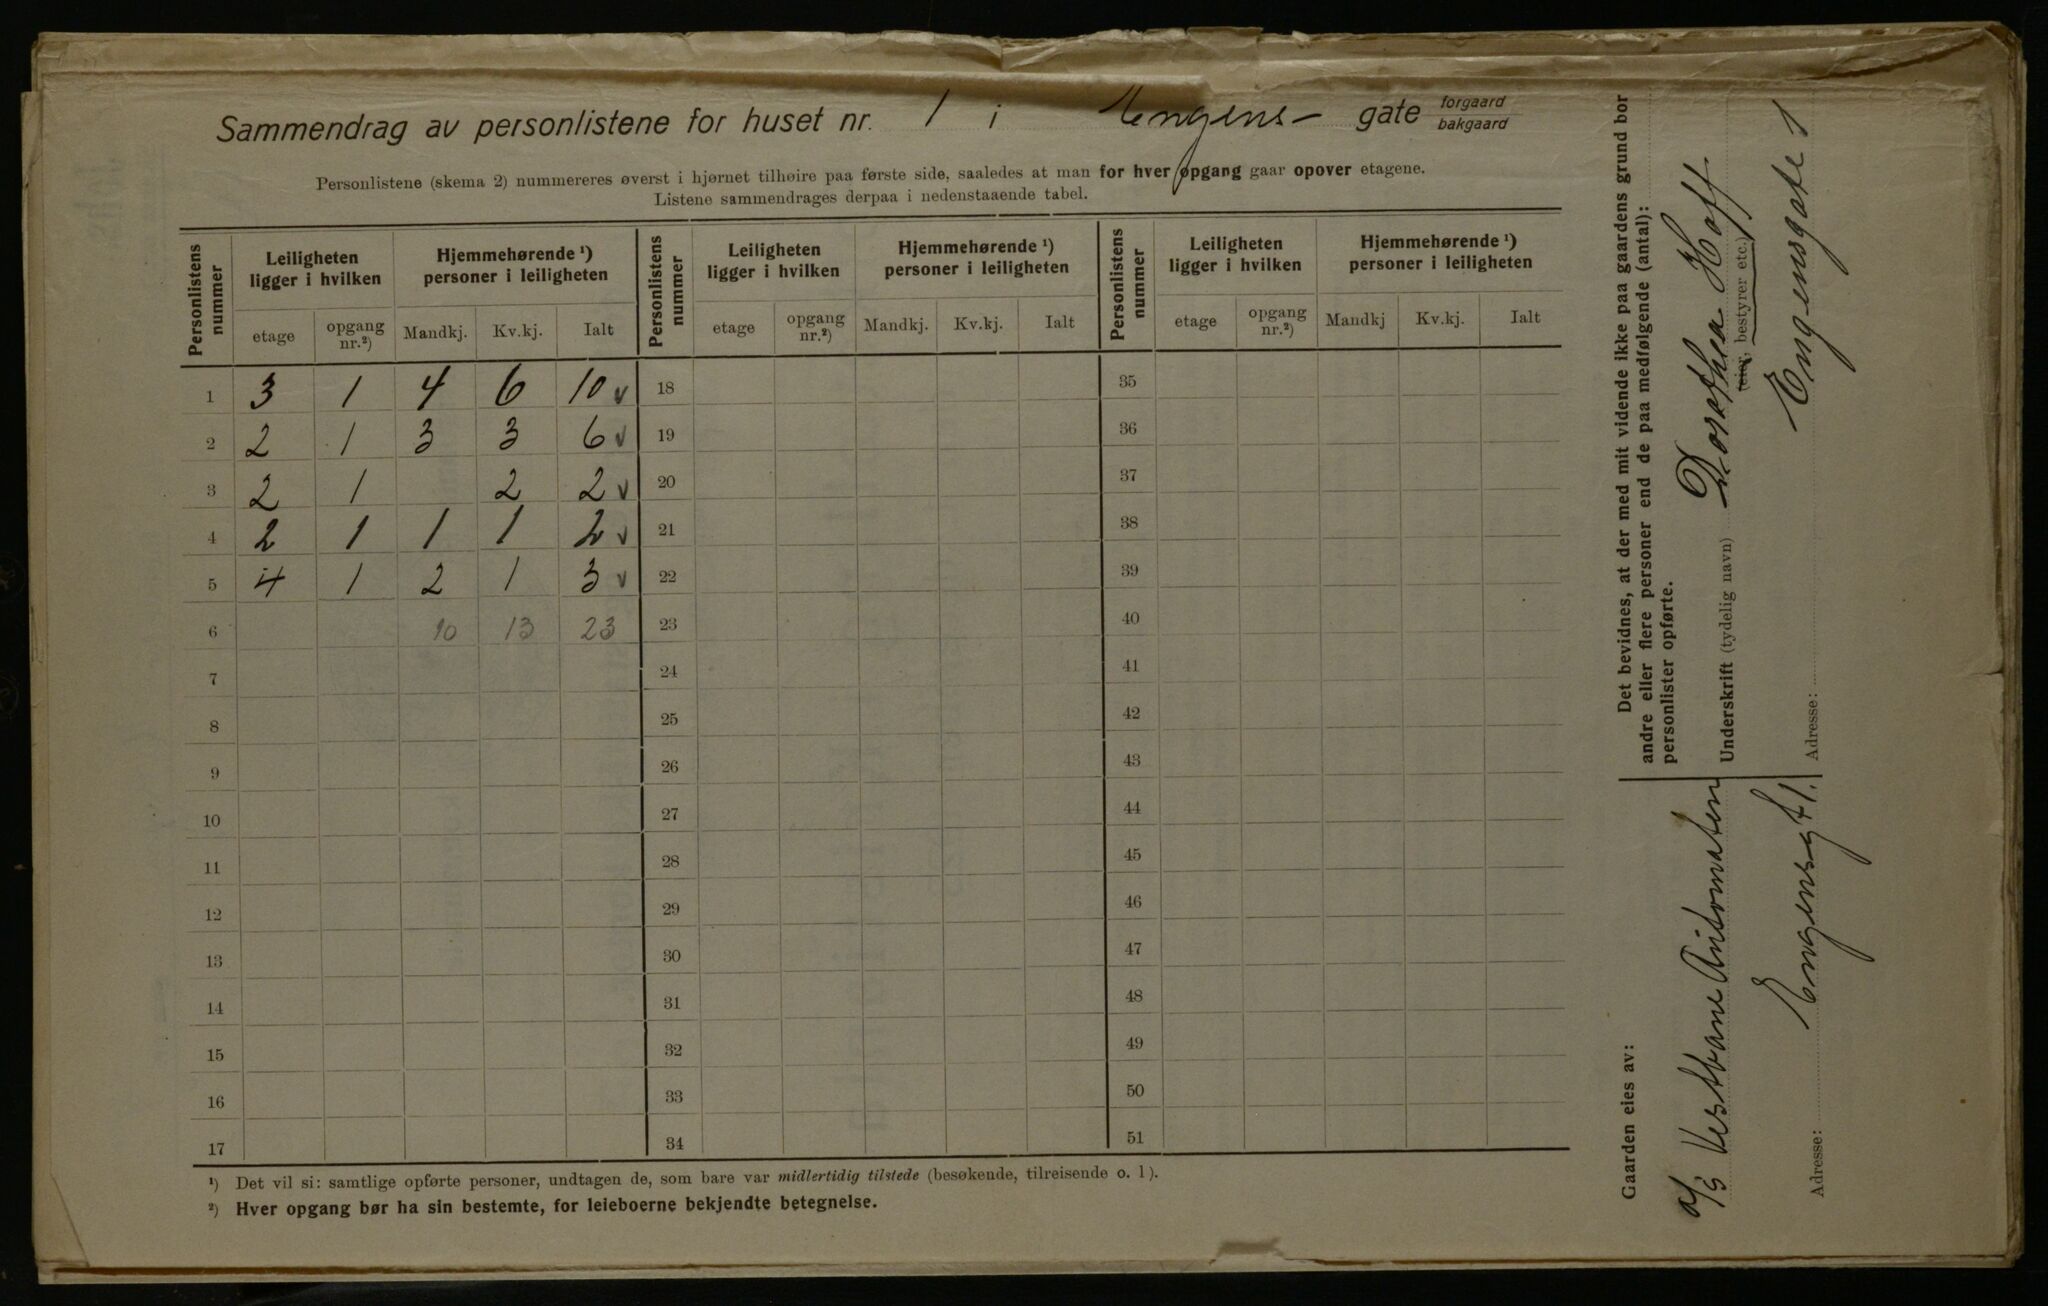 Sammendrag av personlistene for huset nr. 1 i Engens- gate forgaard bakgaard
Personlistene (skema 2) nummereres øverst i hjørnet tilhøire paa første side, saaledes at man for hver opgang gaar opover etagene.
Listene sammendrages derpaa i nedenstaaende tabel.
Personlistens nummer | Leiligheten ligger i hvilken | Hjemmehørende ¹) personer i leiligheten | Personlistens nummer | Leiligheten ligger i hvilken | Hjemmehørende ¹) personer i leiligheten | Personlistens nummer | Leiligheten ligger i hvilken | Hjemmehørende ¹) personer i leiligheten
etage | opgang nr.²) | Mandkj. | Kv.kj. | Ialt | etage | opgang nr.²) | Mandkj. | Kv.kj. | Ialt | etage | opgang nr.²) | Mandkj | Kv.kj. | Ialt
1 3 1 4 6 10 v 18 35
2 2 1 3 3 6 v 19 36
3 2 1 2 2 v 20 37
4 2 1 1 1 2 v 21 38
5 4 1 2 1 3 v 22 39
6 10 13 23 23 40
7 24 41
8 25 42
9 26 43
10 27 44
11 28 45
12 29 46
13 30 47
14 31 48
15 32 49
16 33 50
17 34 51
¹) Det vil si: samtlige opførte personer, undtagen de, som bare var midlertidig tilstede (besøkende, tilreisende o. l).
²) Hver opgang bør ha sin bestemte, for leieboerne bekjendte betegnelse.
Gaarden eies av:
A/S Vestbane Automaten
Adresse: Engensgt 1.
Det bevidnes, at der med mit vidende ikke paa gaardens grund bor
andre eller flere personer end de paa medfølgende (antal):
personlister opførte.
Underskrift (tydelig navn) Dorothea Hoff
(eier, bestyrer etc.)
Adresse: Engensgate 1